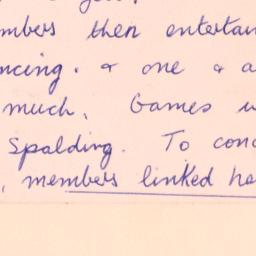 mbers then entertai
ncing. & one & a
much. Games w
Spalding. To conc
, members linked ha